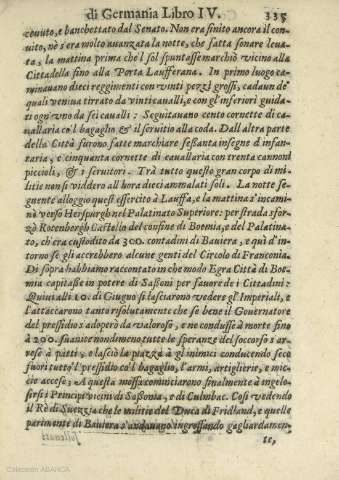 di Germania Libro IV. 335
ceuuto, e banchettato dal Senato. Non era finito ancora il con-
uito, nè s'era molto auanzata la notte, che fatta sonare leua-
ta, la mattina prima che'l sol spuntasse marchiò vicino alla
Cittadella fino alla Porta Laufferana. In primo luogo ca-
minauano dieci reggimenti con vinti pezzi grossi, cadaun de'
quali veniua tirrato da vinti caualli, e con gl'inferiori guida-
ti ogn'vno da sei caualli: Seguitauano cento cornette di ca-
uallaria co'l bagaglio & il seruitio alla coda. Dall'altra parte
della Città furono fatte marchiare sessanta insegne d'infan-
taria, e cinquanta cornette di cauallaria con trenta cannoni
piccioli, & i seruitori. Trà tutto questo gran corpo di mi-
litie non si viddero all'hora dieci ammalati soli. La notte se-
guente alloggiò quest'essercito à Lauffa, e la mattina s'incami-
nò verso Herspurgh nel Palatinato Superiore: per strada sfor-
zò Rotenbergh Castello del confine di Boemia, e del Palatina-
to, ch'era custodito da 300. contadini di Bauiera, e quì d'in-
torno se gli accrebbero alcune genti del Circolo di Franconia.
Di sopra habbiamo raccontato in che modo Egra Città di Boe-
mia capitasse in potere di Sassoni per fauore de i Cittadini:
Quiui alli 10. di Giugno si lasciarono vedere gl'Imperiali, e
l'attaccarono tanto risolutamente che se bene il Gouernatore
del pressidio s'adoperò da valoroso, e ne condusse à morte fino
à 200. suanite nondimeno tutte le speranze del soccorso s'ar-
rese à patti, e lasciò la piazza à gl'inimici conducendo seco
fuori tutto'l pressidio co'l bagaglio, l'armi, artiglierie, e mic-
cie accese; A questa mossa cominciarono finalmente à ingelo-
sirsi i Principi vicini di Sassonia, e di Culmbac. Così vedendo
il Rè di Suezzia che le militie del Duca di Fridland, e quelle
parimente di Bauiera s'andauano ingrossando gagliardamen-
te,
Colección ABANCA